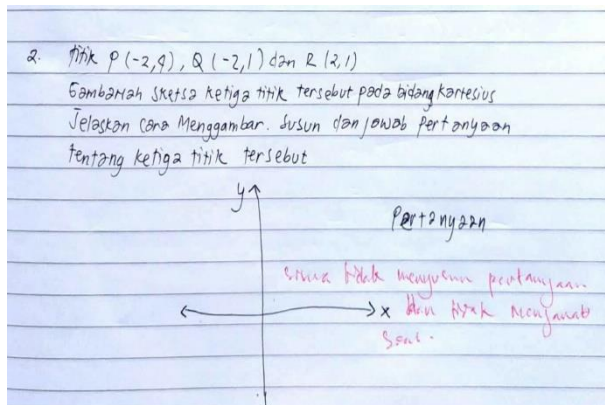 2. Titik P (-2,4), Q (-2,1) dan R (2,1)
Gambarlah sketsa ketiga titik tersebut pada bidang kartesius
Jelaskan cara Menggambar. Susun dan jawab pertanyaan
tentang ketiga titik tersebut
y
Pertanyaan
siswa tidak menyusun pertanyaan
x dan tidak menjawab
soal.